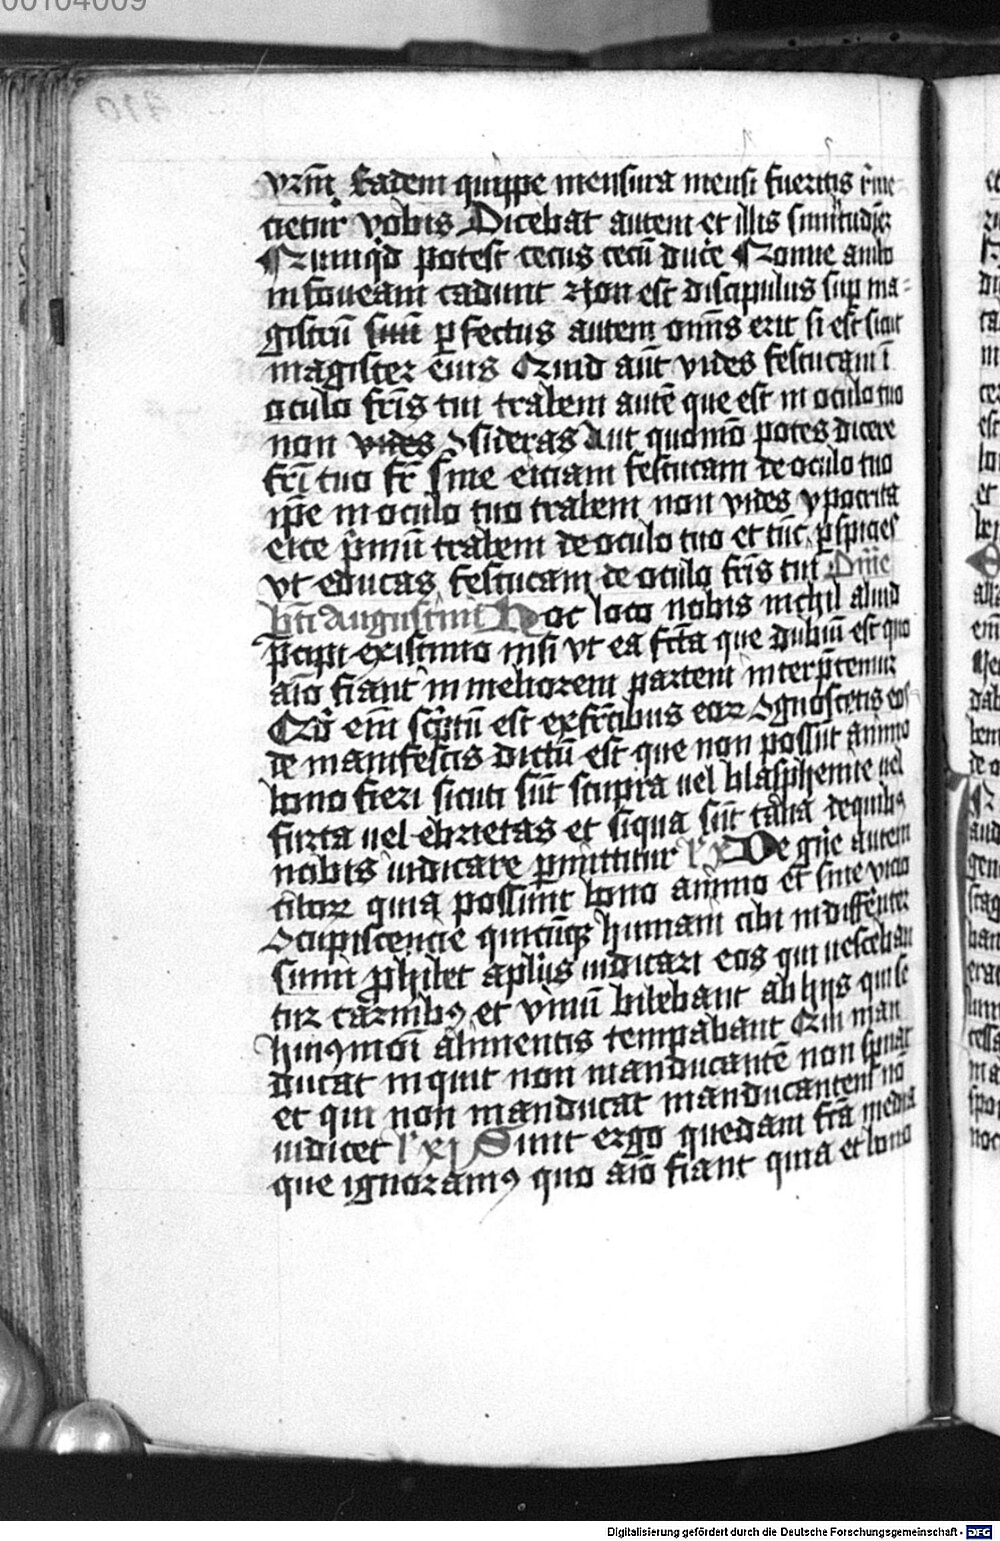 00104009
vrm̄ Eadem quippe mensura mensi fueritis r̄me
tietur vobis Dicebat autem et illis similitudiēz
Nūquid potest cecus cecū ducē Nonne ambo
in foueam cadunt Non est discipulus sup ma-
gistrū suū ꝑfectus autem omīs erit si est sicut
magister eius Quid aūt vides festucam ī
oculo frīs tui trabem autē que est in oculo tuo
non vides ꝯsideras Aut quomō potes dicere
frī tuo fr̄ sine eiciam festucam de oculo tuo
ipse in oculo tuo trabem non vides ypocrita
eice p̄mū trabem de oculo tuo et tūc ꝑspicies
vt educas festucam de oculo frīs tui Omē
bt̄i Augustini Hoc loco nobis nichil aliud
p̄cipi existimo nisi vt ea fc̄ta que dubiū est quo
aīo fiant in meliorem partem interp̄temur
Qd̓ em̄ sc̓ptū est ex fc̄tibus eoꝝ ꝯgnoscetis eos
de manifestis dictū est que non possūt animo
bono fieri sicuti sūt stupra uel blasphemie uel
furta uel ebrietas et siqua sūt talia de quibꝰ
nobis iudicare ꝑmittitur lx De gn̄e autem
ciboꝝ quia possunt bono animo et sine vicio
ꝯcupiscencie quicūqꝫ humani cibi indifferenter
sumi ꝓhibet aplūs iudicari eos qui uesceban
tur carnibꝰ et vinū bibebant ab hijs qui se
hiꝰmōi alimentis tempabant Qui man
ducat inquit non manducantē non spnat
et qui non manducat manducantem nō
iudicet lxi Sunt ergo quedam fc̄a media
que ignoramꝰ quo aīo fiant quia et bono
Digitalisierung gefördert durch die Deutsche Forschungsgemeinschaft - DFG